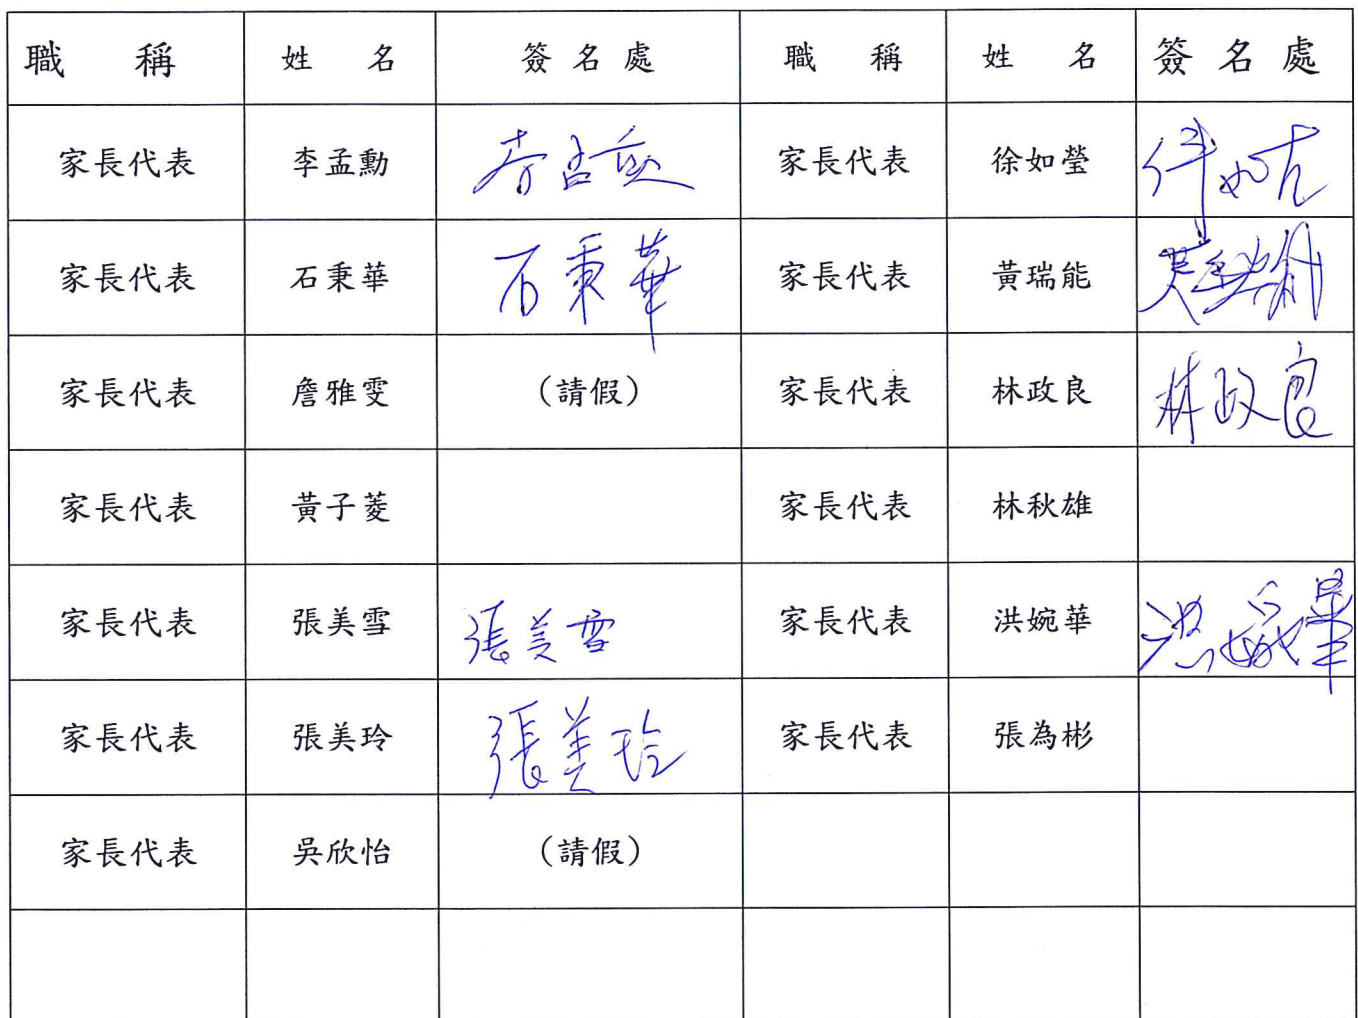 職 稱 姓 名 簽 名 處 職 稱 姓 名 簽 名 處
家長代表 李孟勳 李孟勳 家長代表 徐如瑩 徐如
家長代表 石秉華 石秉華 家長代表 黃瑞能 黃瑞能
家長代表 詹雅雯 (請假) 家長代表 林政良 林政良
家長代表 黃子菱 家長代表 林秋雄
家長代表 張美雪 張美雪 家長代表 洪婉華 洪婉華
家長代表 張美玲 張美玲 家長代表 張為彬
家長代表 吳欣怡 (請假)